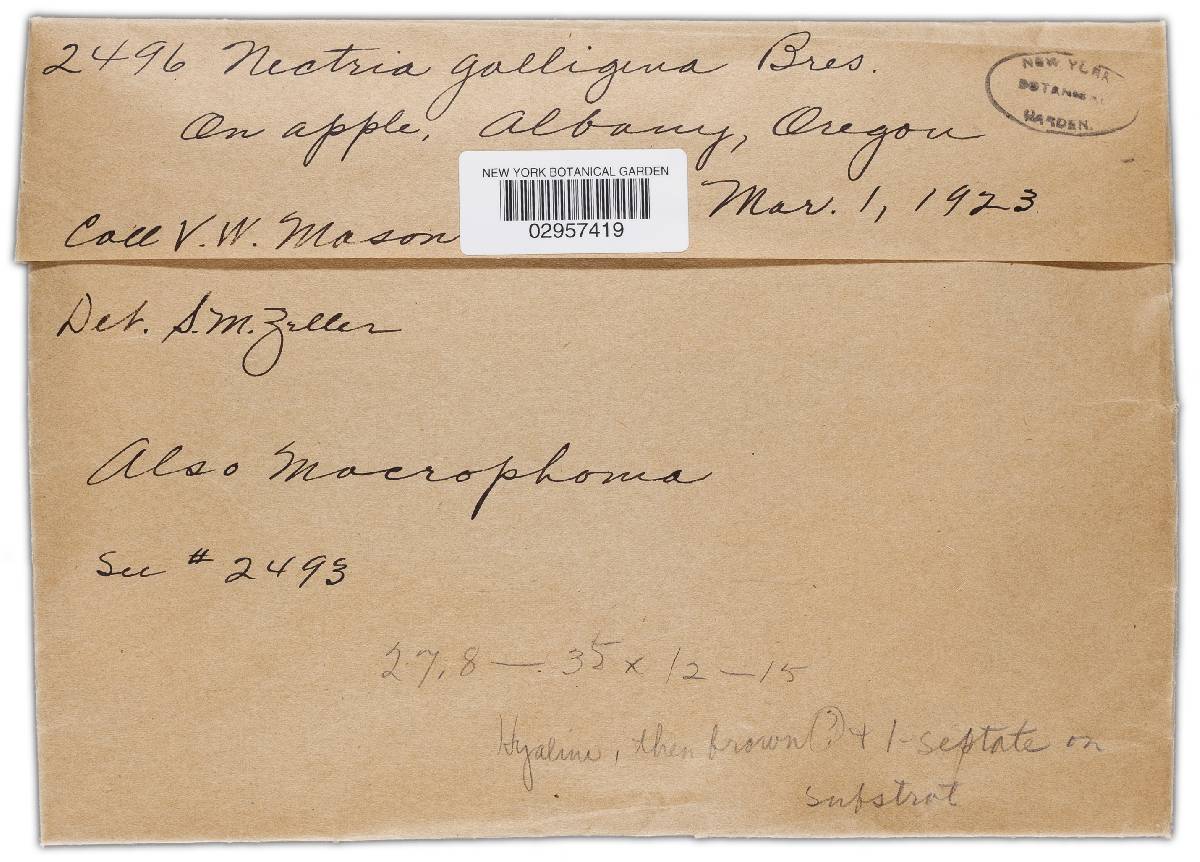 2496 Nectria galligena Bres.
NEW YORK
BOTANICAL
GARDEN.
On apple, Albany, Oregon
NEW YORK BOTANICAL GARDEN
02957419
Mar. 1, 1923
Coll V. W. Mason
Det. S. M. Zeller
Also Macrophoma
See # 2493
27.8 — 35 x 12 — 15
Hyaline, then brown (?) + 1-septate on
substrat